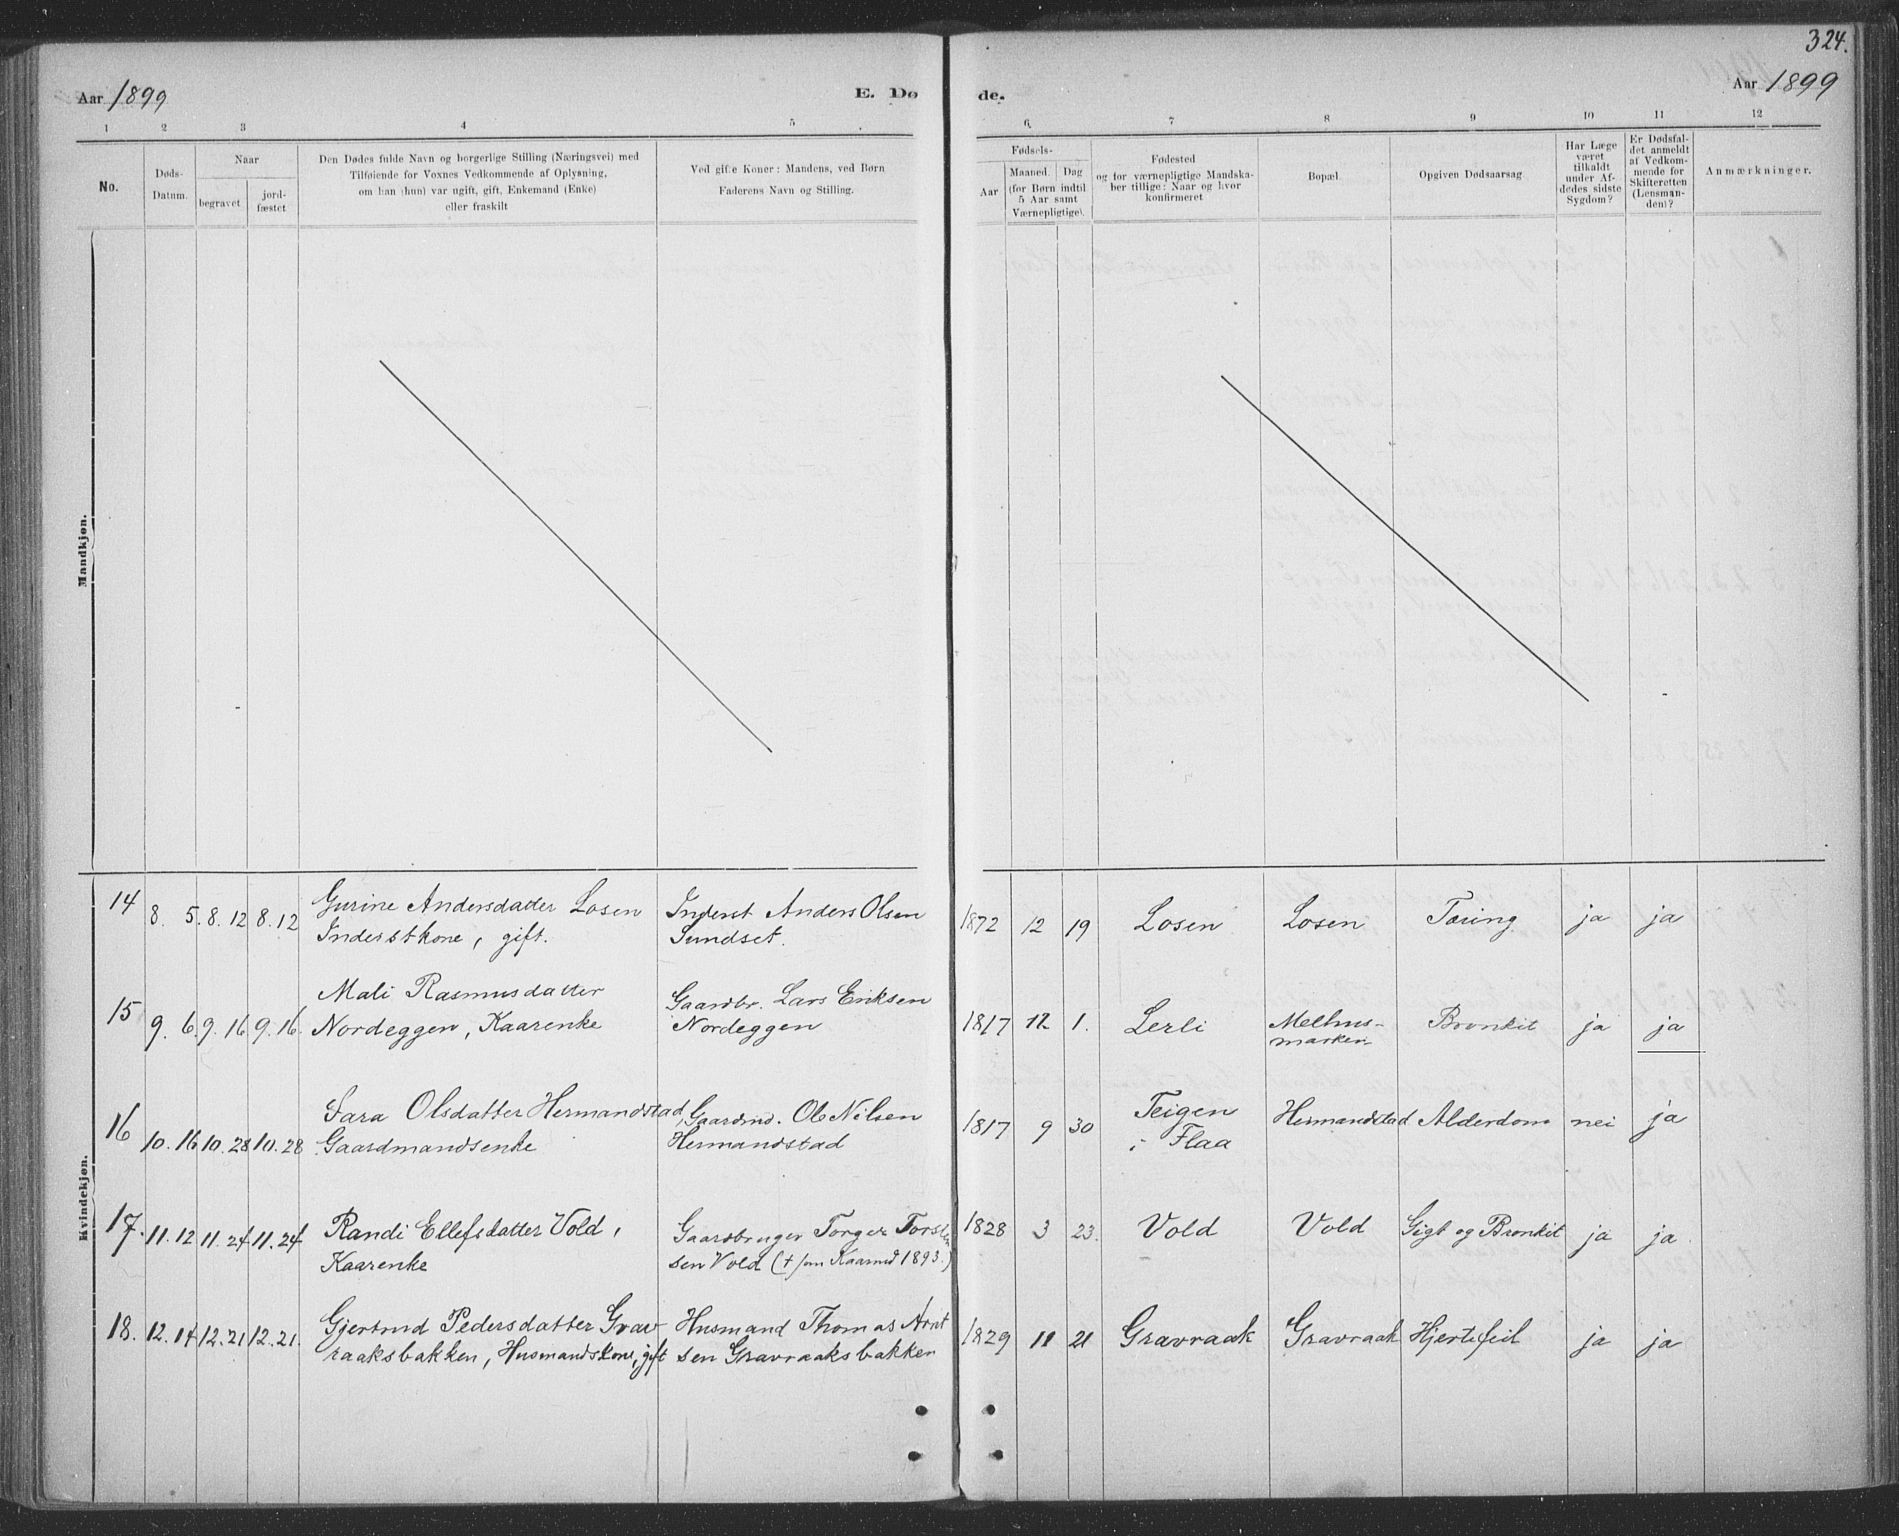 324.
Aar 1899
E. Dø
de.
Aar 1899
1 2 3 4 5
6 7 8 9 10 11 12
No.
Døds-
Datum.
Naar
begravet
jord-
fæstet
Den Dødes fulde Navn og borgerlige Stilling (Næringsvei) med
Tilføiende for Voxnes Vedkommende af Oplysning,
om han (hun) var ugift, gift, Enkemand (Enke)
eller fraskilt
Ved gifte Koner: Mandens, ved Børn
Faderens Navn og Stilling.
Fødsels-
Aar
Maaned. Dag
(for Børn indtil
5 Aar samt
Værnepligtige).
Fødested
og for værnepligtige Mandska-
ber tillige: Naar og hvor
konfirmeret
Bopæl.
Opgiven Dødsaarsag.
Har Læge
været
tilkaldt
under Af-
dødes sidste
Sygdom?
Er Dødsfal-
det anmeldt
af Vedkom-
mende for
Skifteretten
(Lensman-
den)?
Anmærkninger.
Mandkjøn.
Kvindekjøn.
14 8. 5. 8. 12 8. 12 Gurine Andersdatter Losen Inderst Anders Olsen 1872 12 19 Losen Losen Tæring ja ja
Inderstkone, gift. Sundset.
15 9. 6. 9. 16. 9. 16. Mali Rasmusdatter Gaardbr. Lars Eriksen 1817 12. 1. Lerli Melhus- Bronkit ja ja
Nordeggen, Kaarenke Nordeggen marken
16 10. 16 10. 28 10. 28 Sara Olsdatter Hermandstad, Gaardmd. Ole Nilsen 1817 9 30 Teigen Hermandstad Alderdom nei ja
Gaardmandsenke Hermandstad i Flaa
17. 11. 12 11. 24 11. 24 Randi Ellefsdatter Vold, Gaardbruger Torger Torsten 1828 3 23. Vold Vold Gigt og Bronkit ja ja
Kaarenke sen Vold († som Kaarmd 1893.)
18. 12. 14 12. 21 12. 21. Gjertrud Pedersdatter Grav- Husmand Thomas Arnt 1829 11 21 Gravraak Gravraak Hjertefeil ja ja
raaksbakken, Husmandskone, gift sen Gravraaksbakken